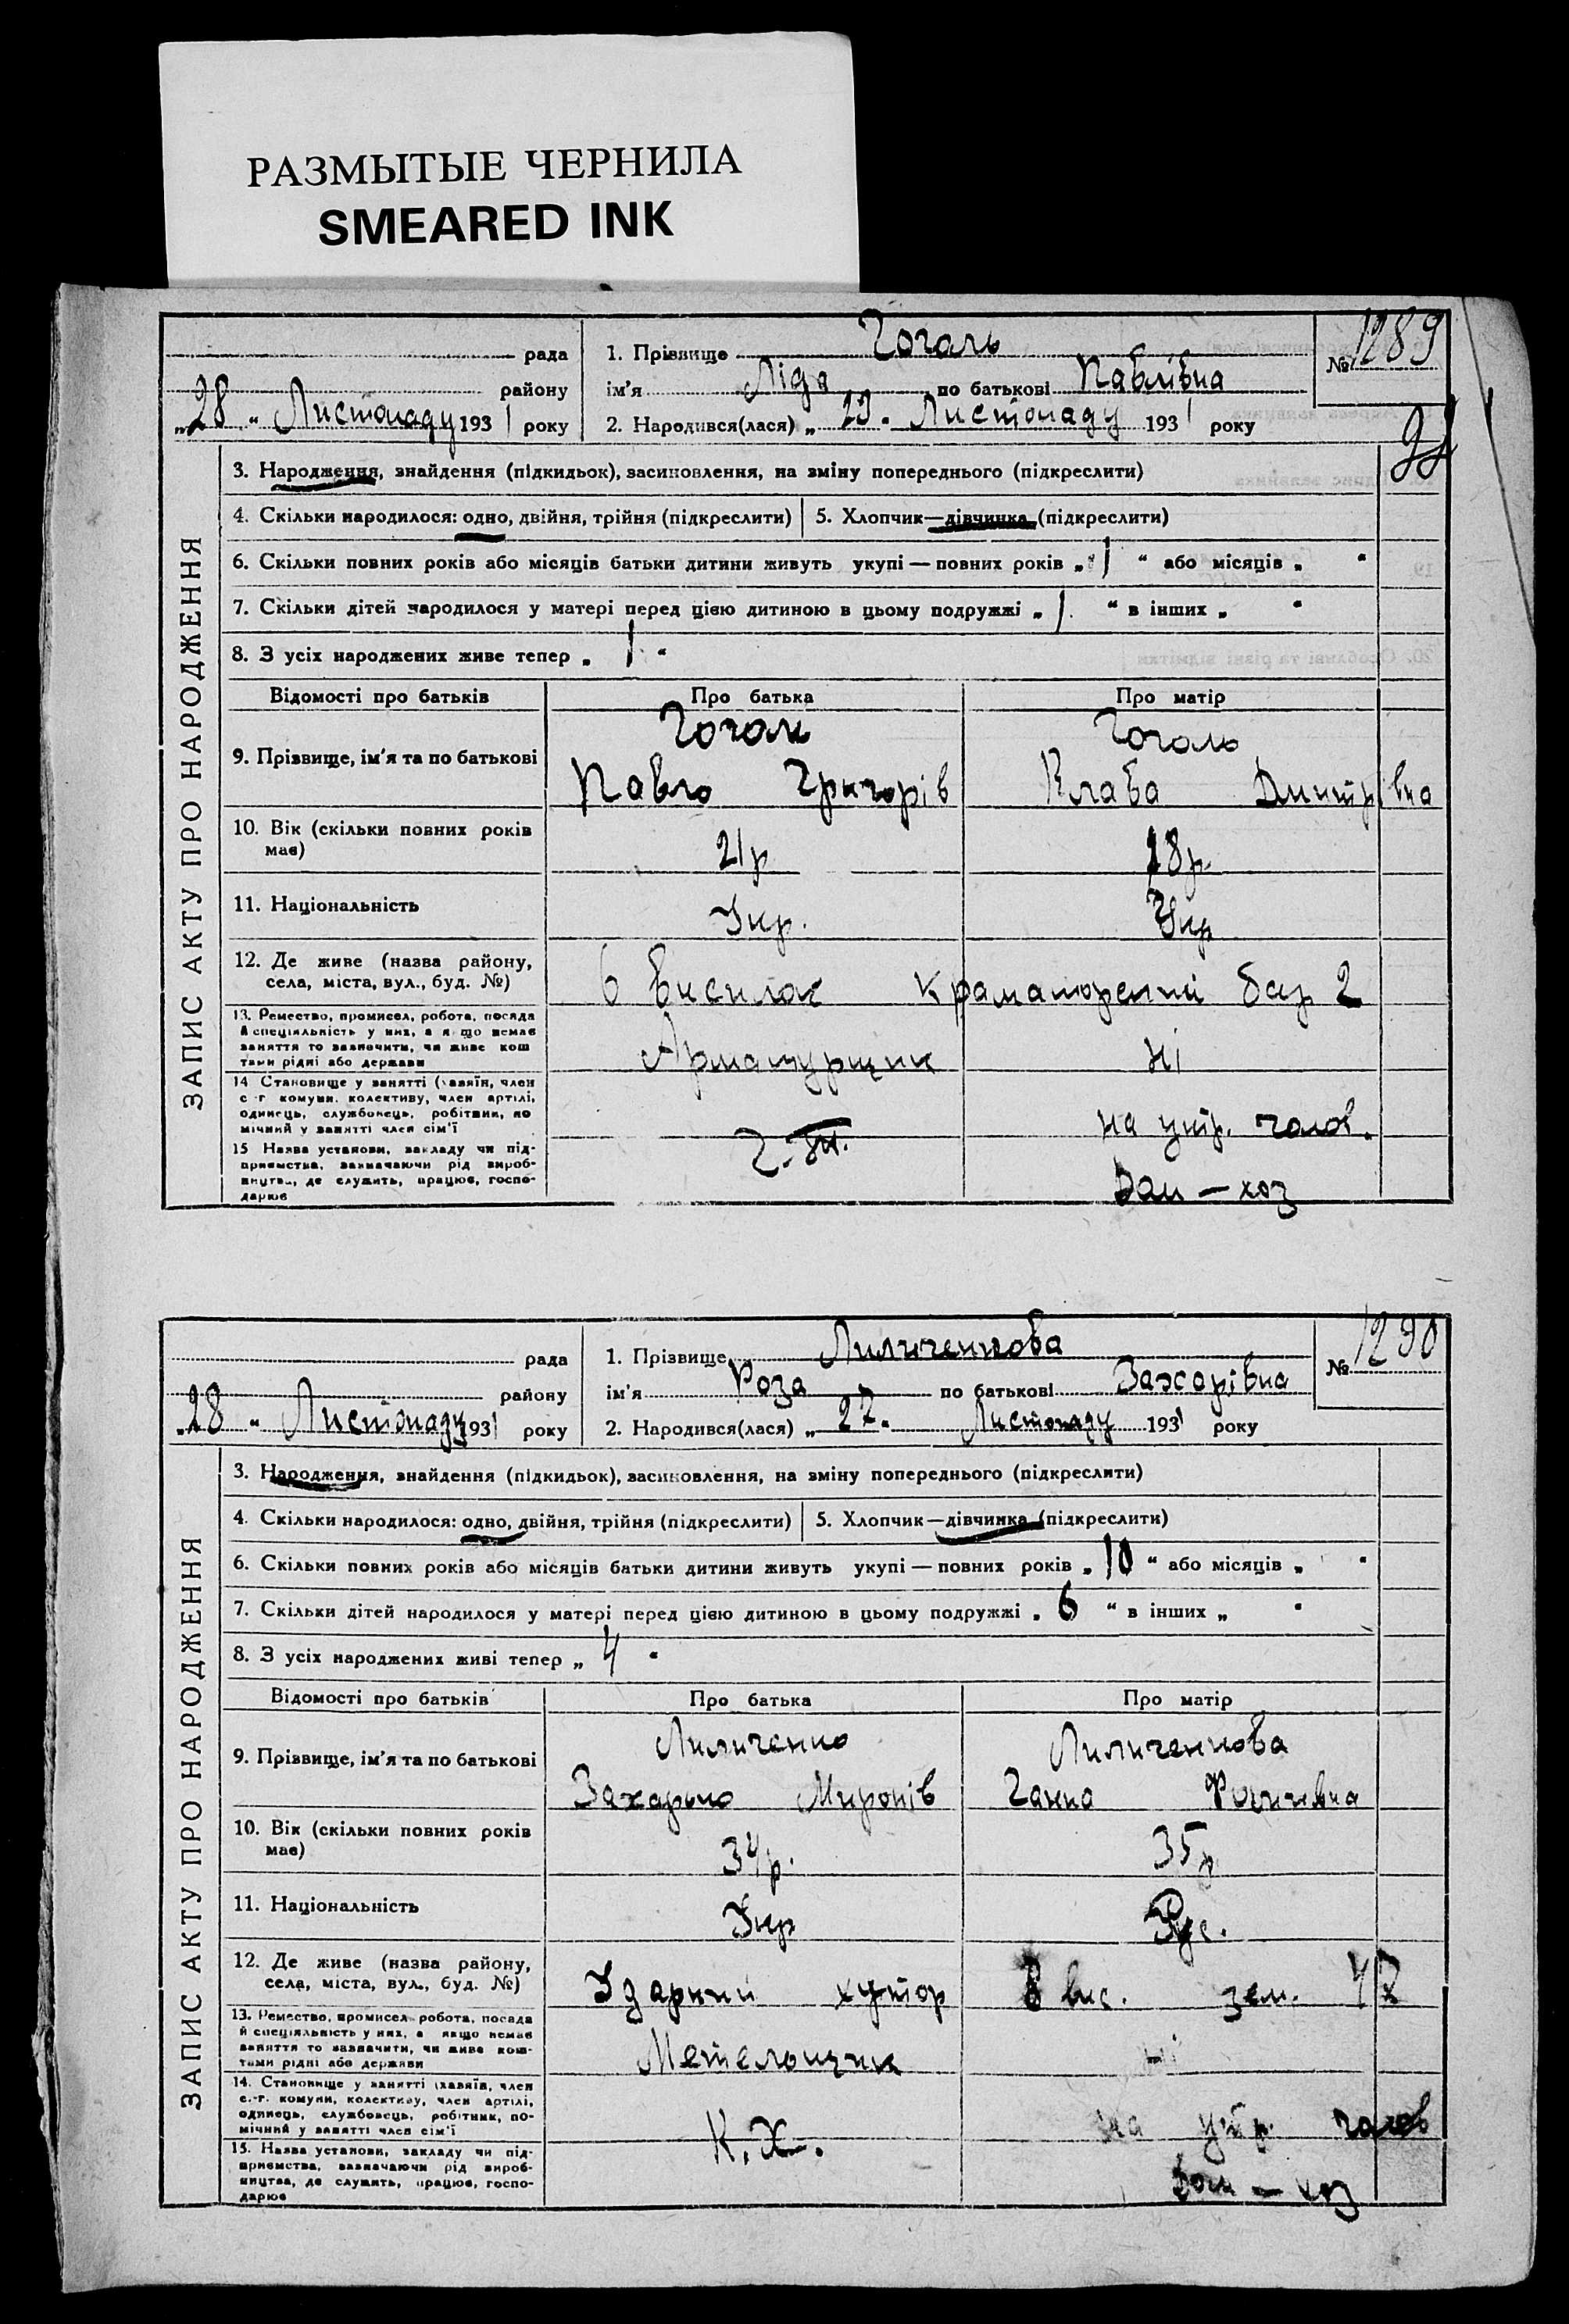 РАЗМЫТЫЕ ЧЕРНИЛА
SMEARED INK
рада
1. Прізвище Гоголь
№ 1289
району
ім'я Ліда по батькові Павлівна
„28“ Листопаду 1931 року
2. Народився(лася) „23“ Листопаду 1931 року
ЗАПИС АКТУ ПРО НАРОДЖЕННЯ
3. Народження, знайдення (підкидьок), засиновлення, на зміну попереднього (підкреслити)
4. Скільки народилося: одно, двійня, трійня (підкреслити) 5. Хлопчик—дівчинка (підкреслити)
6. Скільки повних років або місяців батьки дитини живуть укупі — повних років „1“ або місяців „ “
7. Скільки дітей народилося у матері перед цією дитиною в цьому подружжі „1“ в інших „ “
8. З усіх народжених живе тепер „1“
Відомості про батьків Про батька Про матір
9. Прізвище, ім'я та по батькові
Гоголь Гоголь
Павло Григорів Клава Дмитрівна
10. Вік (скільки повних років має)
21р 18р.
11. Національність
Укр. Укр
12. Де живе (назва району, села, міста, вул., буд. №)
6 Висилок Краматорский бар 2
13. Ремество, промисел, робота, посада
й спеціяльність у них, а якщо немає
заняття то зазначити, чи живе кош
тами рідні або держави
Арматурщик Ні
14 Становище у занятті (хазяїн, член
с-г комуни, колективу, член артілі,
одинець, службовець, робітник, по
мічний у занятті член сім'ї
на утр. чолов.
15 Назва установи, закладу чи під-
приємства, зазначаючи рід вироб-
ництва, де служить, працює, госпо-
дарює
Дом — хоз
рада
1. Прізвище Лиличенкова
№ 1290
району
ім'я Роза по батькові Захарівна
„28“ Листопаду 1931 року
2. Народився(лася) „27“ Листопаду 1931 року
ЗАПИС АКТУ ПРО НАРОДЖЕННЯ
3. Народження, знайдення (підкидьок), засиновлення, на зміну попереднього (підкреслити)
4. Скільки народилося: одно, двійня, трійня (підкреслити) 5. Хлопчик—дівчинка (підкреслити)
6. Скільки повних років або місяців батьки дитини живуть укупі — повних років „10“ або місяців „ “
7. Скільки дітей народилося у матері перед цією дитиною в цьому подружжі „6“ в інших „ “
8. З усіх народжених живі тепер „4“
Відомості про батьків Про батька Про матір
9. Прізвище, ім'я та по батькові
Лиличенко Лиличенкова
Захарко Миронів Ганна
10. Вік (скільки повних років має)
34р. 35р
11. Національність
Укр Рус.
12. Де живе (назва району, села, міста, вул., буд. №)
Ударний хутор 8 вис. зем. 47
13. Ремество, промисел робота, посада
й спеціяльність у них, а якщо немає
заняття то зазначити, чи живе кош-
тами рідні або держави
Метельщик ні
14. Становище у занятті (хазяїн, член
с.-г. комуни, колективу, член артілі,
одинець, службовець, робітник, по-
мічний у занятті член сім'ї
на утр. чолов
15. Назва установи, закладу чи під-
приємства, зазначаючи рід вироб-
ництва, де служить, працює, госпо-
дарює
К. Х. Дом — хоз